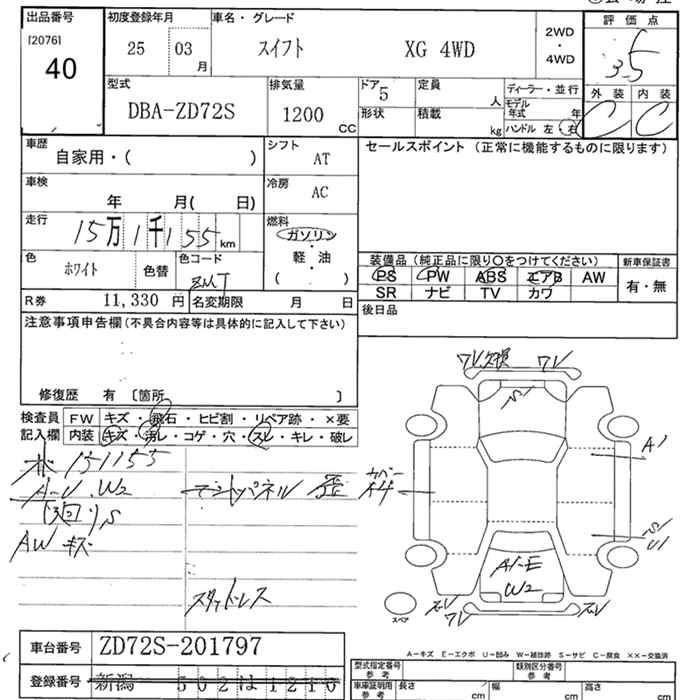 出品番号 初度登録年月 車名・グレード 2WD・4WD 評価点
[2076] 40 25 03月 スイフト XG 4WD 3.5
型式 排気量 ドア 5 定員 人 ディーラー・並行 外装 内装
DBA-ZD72S 1200 CC 形状 積載 kg モデル年式 年 C C
ハンドル 左 右
車歴 自家用・( ) シフト AT セールスポイント (正常に機能するものに限ります)
車検 年 月( 日) 冷房 AC
走行 15万1千155km 燃料 ガソリン・軽・油 ( )
色 ホワイト 色替 色コード ZMT
装備品(純正品に限り〇をつけてください) 新車保証書
PS PW ABS エアB AW 有・無
SR ナビ TV カワ
R券 11,330 円 名変期限 月 日 後日品
注意事項申告欄(不具合内容等は具体的に記入して下さい)
修復歴 有 〔箇所 〕
検査員 FW キズ・飛石・ヒビ割・リペア跡・×要
記入欄 内装 キズ・汚レ・コゲ・穴・スレ・キレ・破レ
151155
A-U.W2
S
AW キズ
スタッドレス
ワレ ワレ
S1
A1
S1
U1
A1-E
W2
ズレ ワレ ズレ
スペア
A-キズ E-エクボ U-凹み W-補修跡 S-サビ C-腐食 ××-交換済
車台番号 ZD72S-201797
登録番号 新潟 502は1210
型式指定番号 参考 類別区分番号 参考
車庫証明用 参考 長さ cm 幅 cm 高さ cm